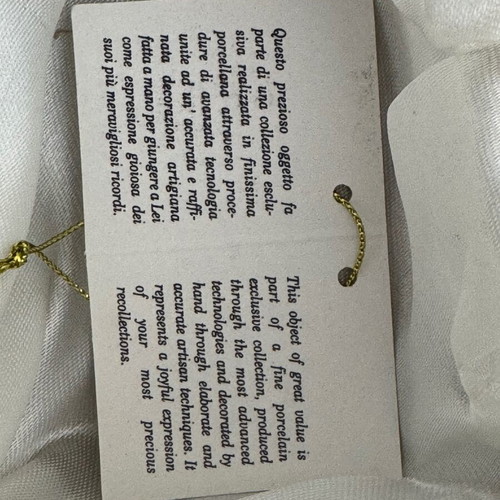 Questo prezioso oggetto fa
parte di una collezione esclu-
siva realizzata in finissima
porcellana attraverso proce-
dure di avanzata tecnologia
unite ad un' accurata e raffi-
nata decorazione artigiana
fatta a mano per giungere a Lei
come espressione gioiosa dei
suoi più meravigliosi ricordi.
This object of great value is
part of a fine porcelain
exclusive collection, produced
through the most advanced
technologies and decorated by
hand through elaborate and
accurate artisan techniques. It
represents a joyful expression
of your most precious
recollections.